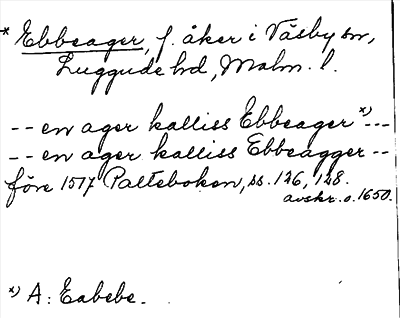 * Ebbeager, f. åker i Väsby sn,
Luggude hd, Malm. l.
-- en ager kalliss Ebbeager *) ---
-- en ager kalliss Ebbeagger --
före 1517 Palteboken, ss. 126, 128.
avskr. o. 1650.
*) A: Eabebe.